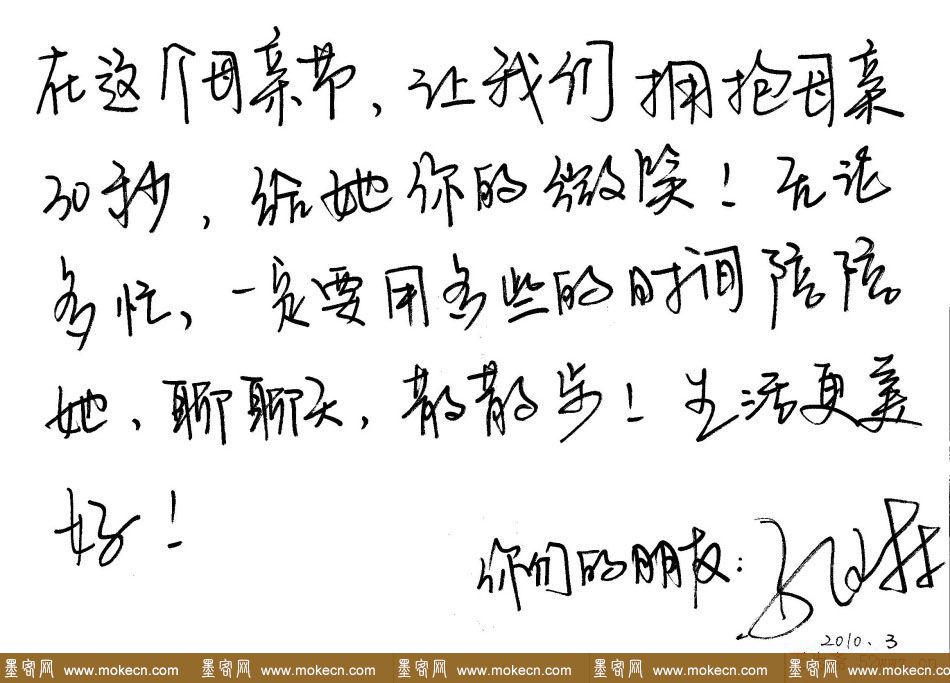 在这个母亲节，让我们拥抱母亲
30秒，给她你的微笑！无论
多忙，一定要用多些的时间陪陪
她，聊聊天，散散步！生活更美
好！
你们的朋友：
2010.3
墨客网 www.mokecn.com 墨客网 www.mokecn.com 墨客网 www.mokecn.com 墨客网 www.mokecn.com 墨客网 www.mokecn.com